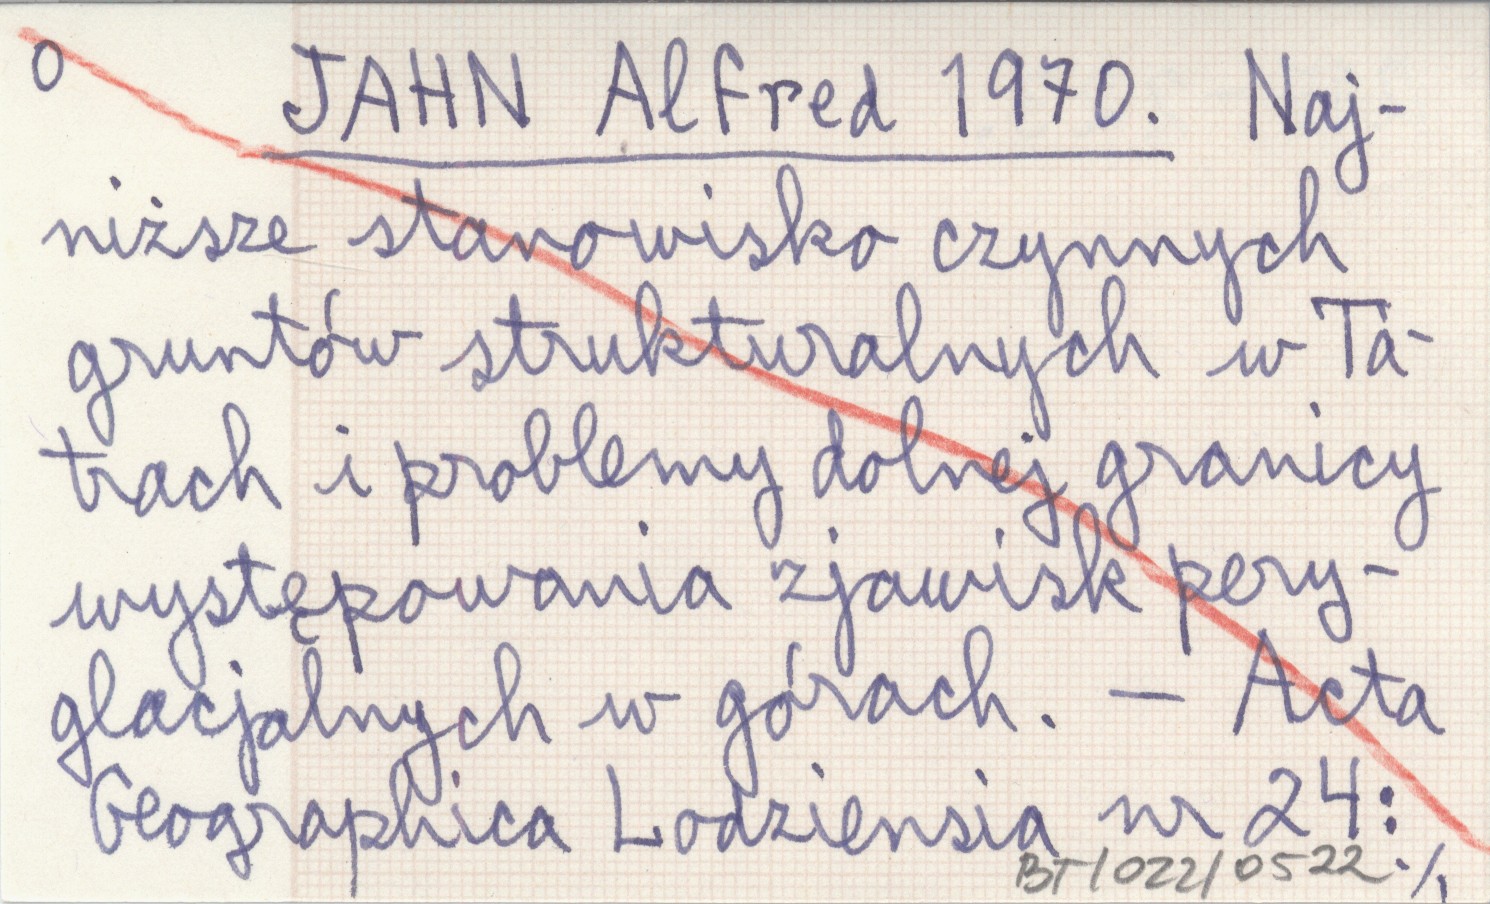 0 JAHN Alfred 1970. Naj-
niższe stanowisko czynnych
gruntów strukturalnych w Ta-
trach i problemy dolnej granicy
występowania zjawisk pery-
glacjalnych w górach. — Acta
Geographica Lodziensia nr 24:
BT/022/0522 ./.